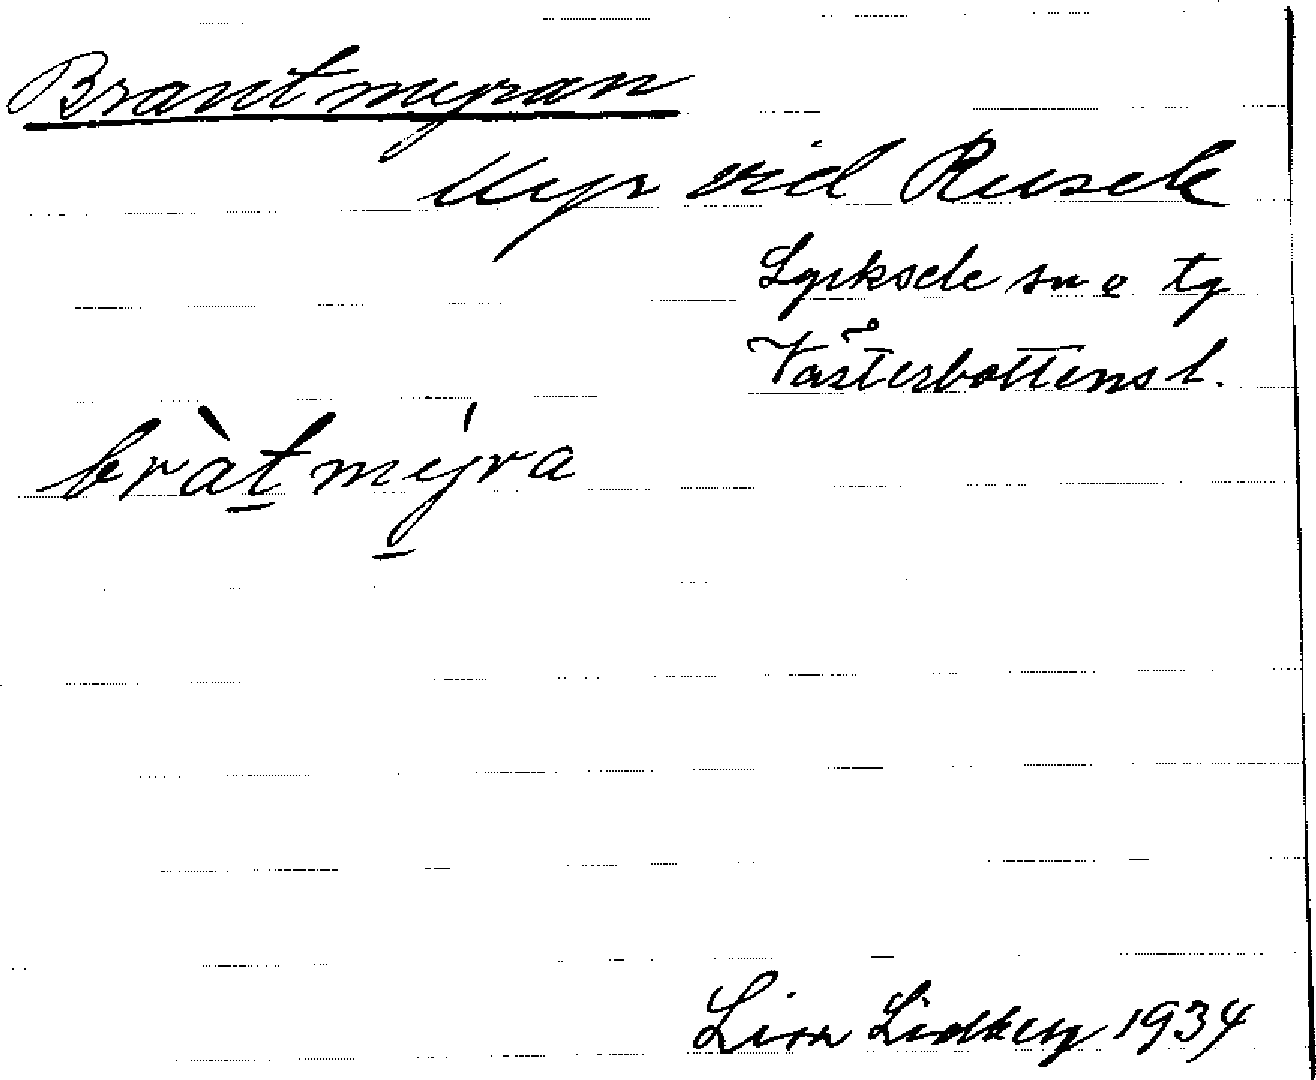 Brantmyran
Myr vid Rusele
Lycksele sn o tg
Västerbottens l.
bràt̲mý̲ra
Lisa Lidberg 1934